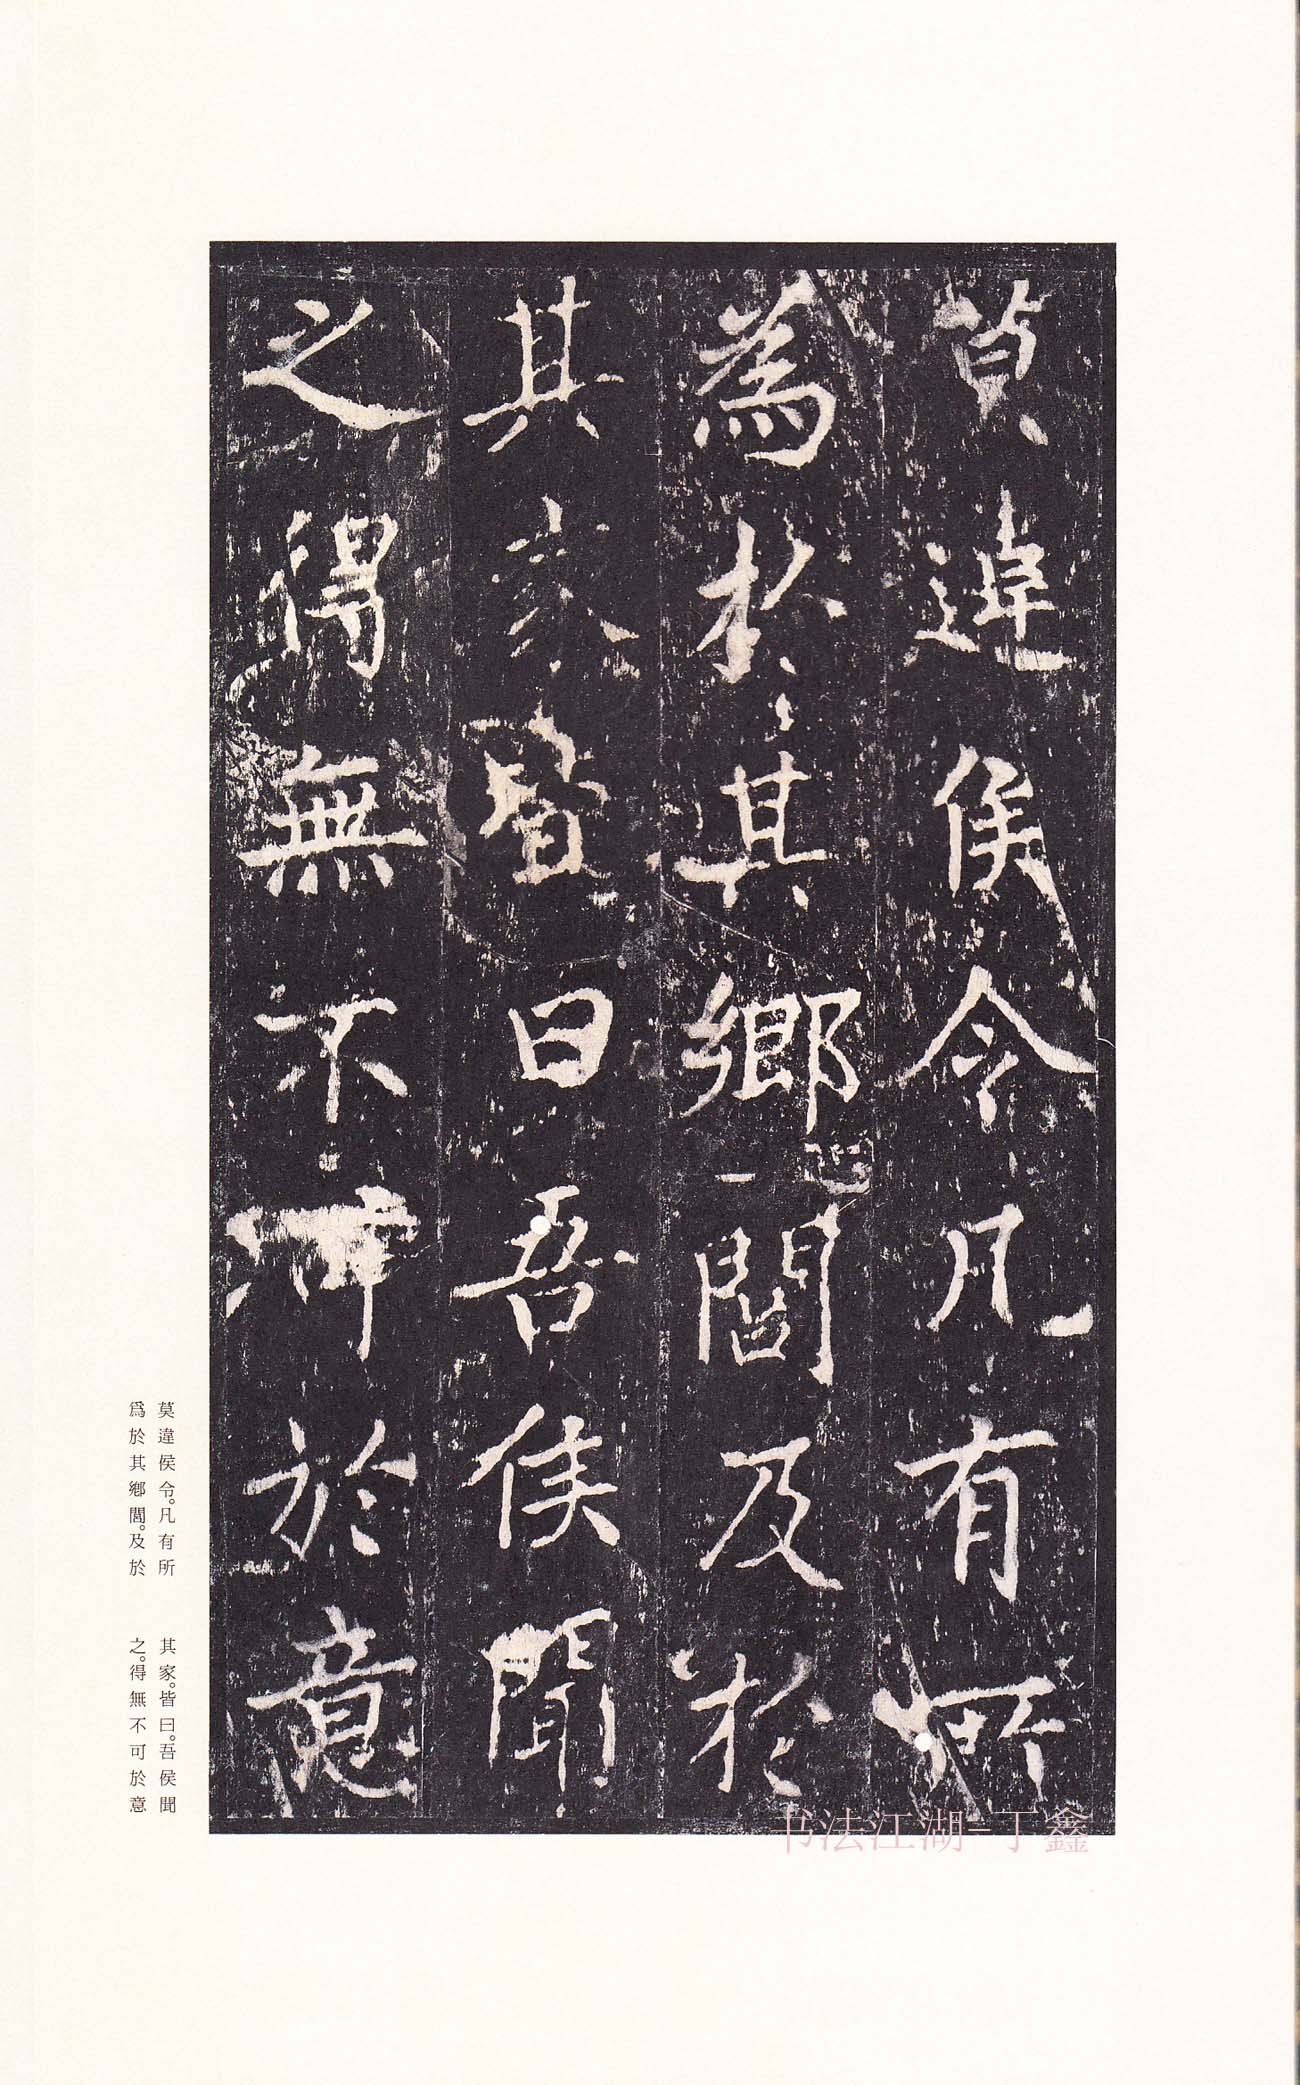 莫違侯令凡有所
為於其鄉閭及於
其家皆曰吾侯聞
之得無不可於意
莫違侯令。凡有所
爲於其鄉閭。及於
其家。皆曰。吾侯聞
之。得無不可於意
书法江湖-丁鑫